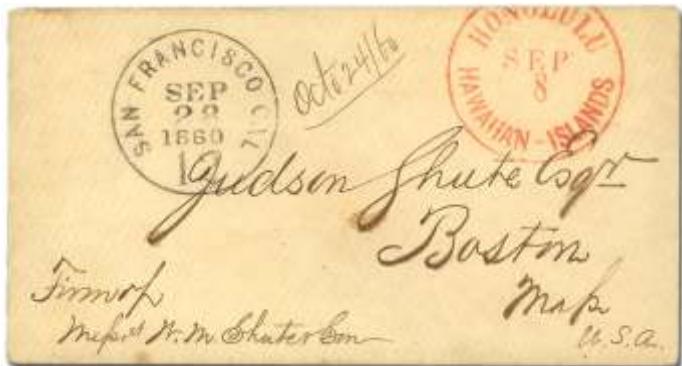 SAN FRANCISCO CAL
SEP
22
1860
10
Octo 24/60
HONOLULU
SEP
8
HAWAIIAN - ISLANDS
Judson Shute Esqr
Boston
Mass
U.S.A.
Firm of
Messrs W. M. Shute & Son